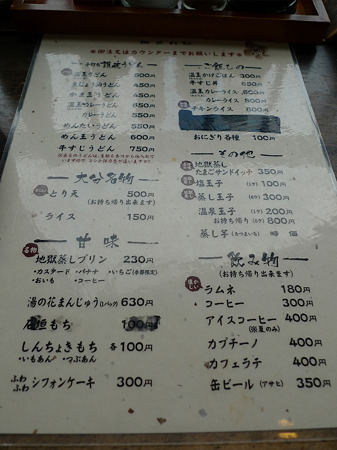 ※御注文はカウンターまでお願いします※
讃岐うどん
温玉うどん 500円
釜玉うどん 500円
温玉カレーうどん 650円
カレーうどん
めんたいうどん 550円
めん玉うどん 600円
牛すじうどん 750円
大分名物
とり天 500円
(お持ち帰り出来ます)
ライス 150円
甘味
名物
地獄蒸しプリン 230円
・カスタード ・バナナ ・いちご(季節限定)
・おいも ・コーヒー
湯の花まんじゅう(1パック) 630円
石垣もち 100円
しんちょきもち 各100円
・いもあん ・つぶあん
ふわふわ シフォンケーキ 300円
ご飯もの
温玉かけごはん 300円
牛すじ丼
温玉カレーライス
カレーライス 600円
チキンライス
おにぎり各種 100円
その他
地獄蒸し
たまごサンドイッチ 350円
塩玉子 100円
蒸し玉子 300円
温泉玉子 200円
お持ち帰り 800円
蒸し芋 (さつまいも) 時価
飲み物
(お持ち帰り出来ます)
ラムネ 180円
・コーヒー 300円
アイスコーヒー 400円
(※夏のみ)
カプチーノ 400円
カフェラテ 400円
缶ビール (アサヒ) 350円